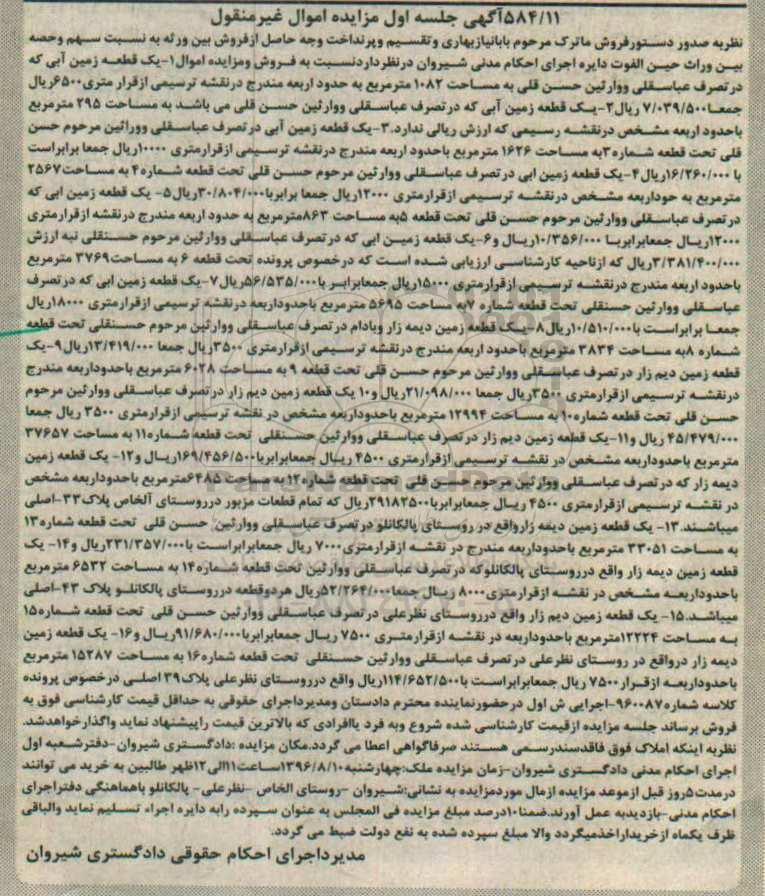 ۵۸۴/۱۱آگهی جلسه اول مزایده اموال غیرمنقول
نظربه صدور دستورفروش ماترک مرحوم بابانیازبهاری وتقسیم وپرنداخت وجه حاصل ازفروش بین ورثه به نسبت سهم وحصه
بین وراث حین الفوت دایره اجرای احکام مدنی شیروان درنظرداردنسبت به فروش ومزایده اموال۱-یک قطعه زمین آبی که
درتصرف عباسقلی ووارثین حسن قلی به مساحت ۱۰۸۲ مترمربع به حدود اربعه مندرج درنقشه ترسیمی ازقرار متری۶۵۰۰ریال
جمعا۷/۰۳۹/۵۰۰ ریال۲-یک قطعه زمین آبی که درتصرف عباسقلی ووارثین حسن قلی می باشد به مساحت ۲۹۵ مترمربع
باحدود اربعه مشخص درنقشه رسیمی که ارزش ریالی ندارد.۳-یک قطعه زمین آبی درتصرف عباسقلی وورائین مرحوم حسن
قلی تحت قطعه شماره۳به مساحت ۱۶۲۶ مترمربع باحدود اربعه مندرج درنقشه ترسیمی ازقرارمتری ۱۰۰۰۰ریال جمعا برابراست
با ۱۶/۲۶۰/۰۰۰ریال۴-یک قطعه زمین ابی درتصرف عباسقلی ووارثین مرحوم حسن قلی تحت قطعه شماره۴ به مساحت۲۵۶۷
مترمربع به حوداربعه مشخص درنقشه ترسیمی ازقرارمتری ۱۲۰۰۰ریال جمعا برابربا۳۰/۸۰۴/۰۰۰ریال۵- یک قطعه زمین ابی که
درتصرف عباسقلی ووارثین مرحوم حسن قلی تحت قطعه ۵به مساحت ۸۶۳مترمربع به حدود اربعه مندرج درنقشه ازقرارمتری
۱۲۰۰۰ریال جمعابرابربا ۱۰/۳۵۶/۰۰۰ریال و۶-یک قطعه زمین ابی که درتصرف عباسقلی ووارثین مرحوم حسنقلی نبه ارزش
۳/۳۸۱/۴۰۰/۰۰۰ریال که ازناحیه کارشناسی ارزیابی شده است که درخصوص پرونده تحت قطعه ۶ به مساحت۳۷۶۹ مترمربع
باحدود اربعه مندرج درنقشه ترسیمی ازقرارمتری ۱۵۰۰۰ریال جمعابرابر با۵۶/۵۳۵/۰۰۰ریال۷-یک قطعه زمین ابی که درتصرف
عباسقلی ووارثین حسنقلی تحت قطعه شماره ۷به مساحت ۵۶۹۵ مترمربع باحدوداربعه درنقشه ترسیمی ازقرارمتری ۱۸۰۰۰ریال
جمعا برابراست با۱۰/۵۱۰/۰۰۰ریال۸-یک قطعه زمین دیمه زار وبادام درتصرف عباسقلی ووارثین مرحوم حسنقلی تحت قطعه
شماره ۸به مساحت ۳۸۳۴ مترمربع باحدود اربعه مندرج درنقشه ترسیمی ازقرارمتری ۳۵۰۰ریال جمعا ۱۳/۴۱۹/۰۰۰ریال۹-یک
قطعه زمین دیم زار درتصرف عباسقلی ووارثین مرحوم حسن قلی تحت قطعه ۹ به مساحت ۶۰۲۸ مترمربع باحدوداربعه مندرج
درنقشه ترسیمی ازقرارمتری ۳۵۰۰ریال جمعا ۲۱/۰۹۸/۰۰۰ریال و۱۰ یک قطعه زمین دیم زار درتصرف عباسقلی ووارثین مرحوم
حسن قلی تحت قطعه شماره۱۰به مساحت ۱۲۹۹۴ مترمربع باحدوداربعه مشخص در نقشه ترسیمی ازقرارمتری ۳۵۰۰ ریال جمعا
۴۵/۴۷۹/۰۰۰ ریال و۱۱-یک قطعه زمین دیم زار درتصرف عباسقلی ووارثین حسنقلی تحت قطعه شماره۱۱ به مساحت ۳۷۶۵۷
مترمربع باحدوداربعه مشخص در نقشه ترسیمی ازقرارمتری ۴۵۰۰ ریال جمعابرابربا۱۶۹/۴۵۶/۵۰۰ریال و۱۲- یک قطعه زمین
دیمه زار که درتصرف عباسقلی ووارثین مرحوم حسن قلی تحت قطعه شماره۱۲ به مساحت ۶۴۸۵مترمربع باحدوداربعه مشخص
در نقشه ترسیمی ازقرارمتری ۴۵۰۰ ریال جمعابرابربا۲۹۱۸۲۵۰۰ریال که تمام قطعات مزبور درروستای آلخاص پلاک۳۳-اصلی
میباشند.۱۳- یک قطعه زمین دیمه زارواقع در روستای پالکانلو درتصرف عباسقلی ووارثین حسن قلی تحت قطعه شماره۱۳
به مساحت ۳۳۰۵۱ مترمربع باحدوداربعه مندرج در نقشه ازقرارمتری۷۰۰۰ ریال جمعابرابراست با۲۳۱/۳۵۷/۰۰۰ریال و۱۴- یک
قطعه زمین دیمه زار واقع درروستای پالکانلوکه درتصرف عباسقلی ووارثین تحت قطعه شماره۱۴ به مساحت ۶۵۳۲ مترمربع
باحدوداربعه مشخص در نقشه ازقرارمتری ۸۰۰۰ ریال جمعا۵۲/۲۶۴/۰۰۰ریال هردوقطعه درروستای پالکانلو پلاک ۴۳-اصلی
میباشد.۱۵- یک قطعه زمین دیم زار واقع درروستای نظرعلی درتصرف عباسقلی ووارثین حسن قلی تحت قطعه شماره۱۵
به مساحت ۱۲۲۲۴مترمربع باحدوداربعه در نقشه ازقرارمتری ۷۵۰۰ ریال جمعابرابربا۹۱/۶۸۰/۰۰۰ریال و۱۶- یک قطعه زمین
دیمه زار درواقع در روستای نظرعلی درتصرف عباسقلی ووارثین حسنقلی تحت قطعه شماره۱۶ به مساحت ۱۵۲۸۷ مترمربع
باحدوداربعه ازقرار۷۵۰۰ ریال جمعابرابراست با۱۱۴/۶۵۲/۵۰۰ریال واقع درروستای نظرعلی پلاک۳۹اصلی درخصوص پرونده
کلاسه شماره۹۶۰۰۸۷-اجرایی ش اول درحضورنماینده محترم دادستان ومدیرداجرای حقوقی به حداقل قیمت کارشناسی فوق به
فروش برساند جلسه مزایده ازقیمت کارشناسی شده شروع وبه فرد یاافرادی که بالاترین قیمت راپیشنهاد نماید واگذارخواهدشد.
نظربه اینکه املاک فوق فاقدسندرسمی هستند صرفاگواهی اعطا می گردد.مکان مزایده :دادگستری شیروان-دفترشعبه اول
اجرای احکام مدنی دادگستری شیروان-زمان مزایده ملک:چهارشنبه۱۳۹۶/۸/۱۰ساعت۱۱الی۱۲ظهر طالبین به خرید می توانند
درمدت۵روز قبل ازموعد مزایده ازمال موردمزایده به نشانی:شیروان -روستای الخاص -نظرعلی- پالکانلو باهماهنگی دفتراجرای
احکام مدنی-بازدیدبه عمل آورند.ضمنا۱۰درصد مبلغ مزایده فی المجلس به عنوان سپرده رابه دایره اجراء تسلیم نماید والباقی
ظرف یکماه ازخریداراخذمیگردد والا مبلغ سپرده شده به نفع دولت ضبط می گردد.
مدیرداجرای احکام حقوقی دادگستری شیروان